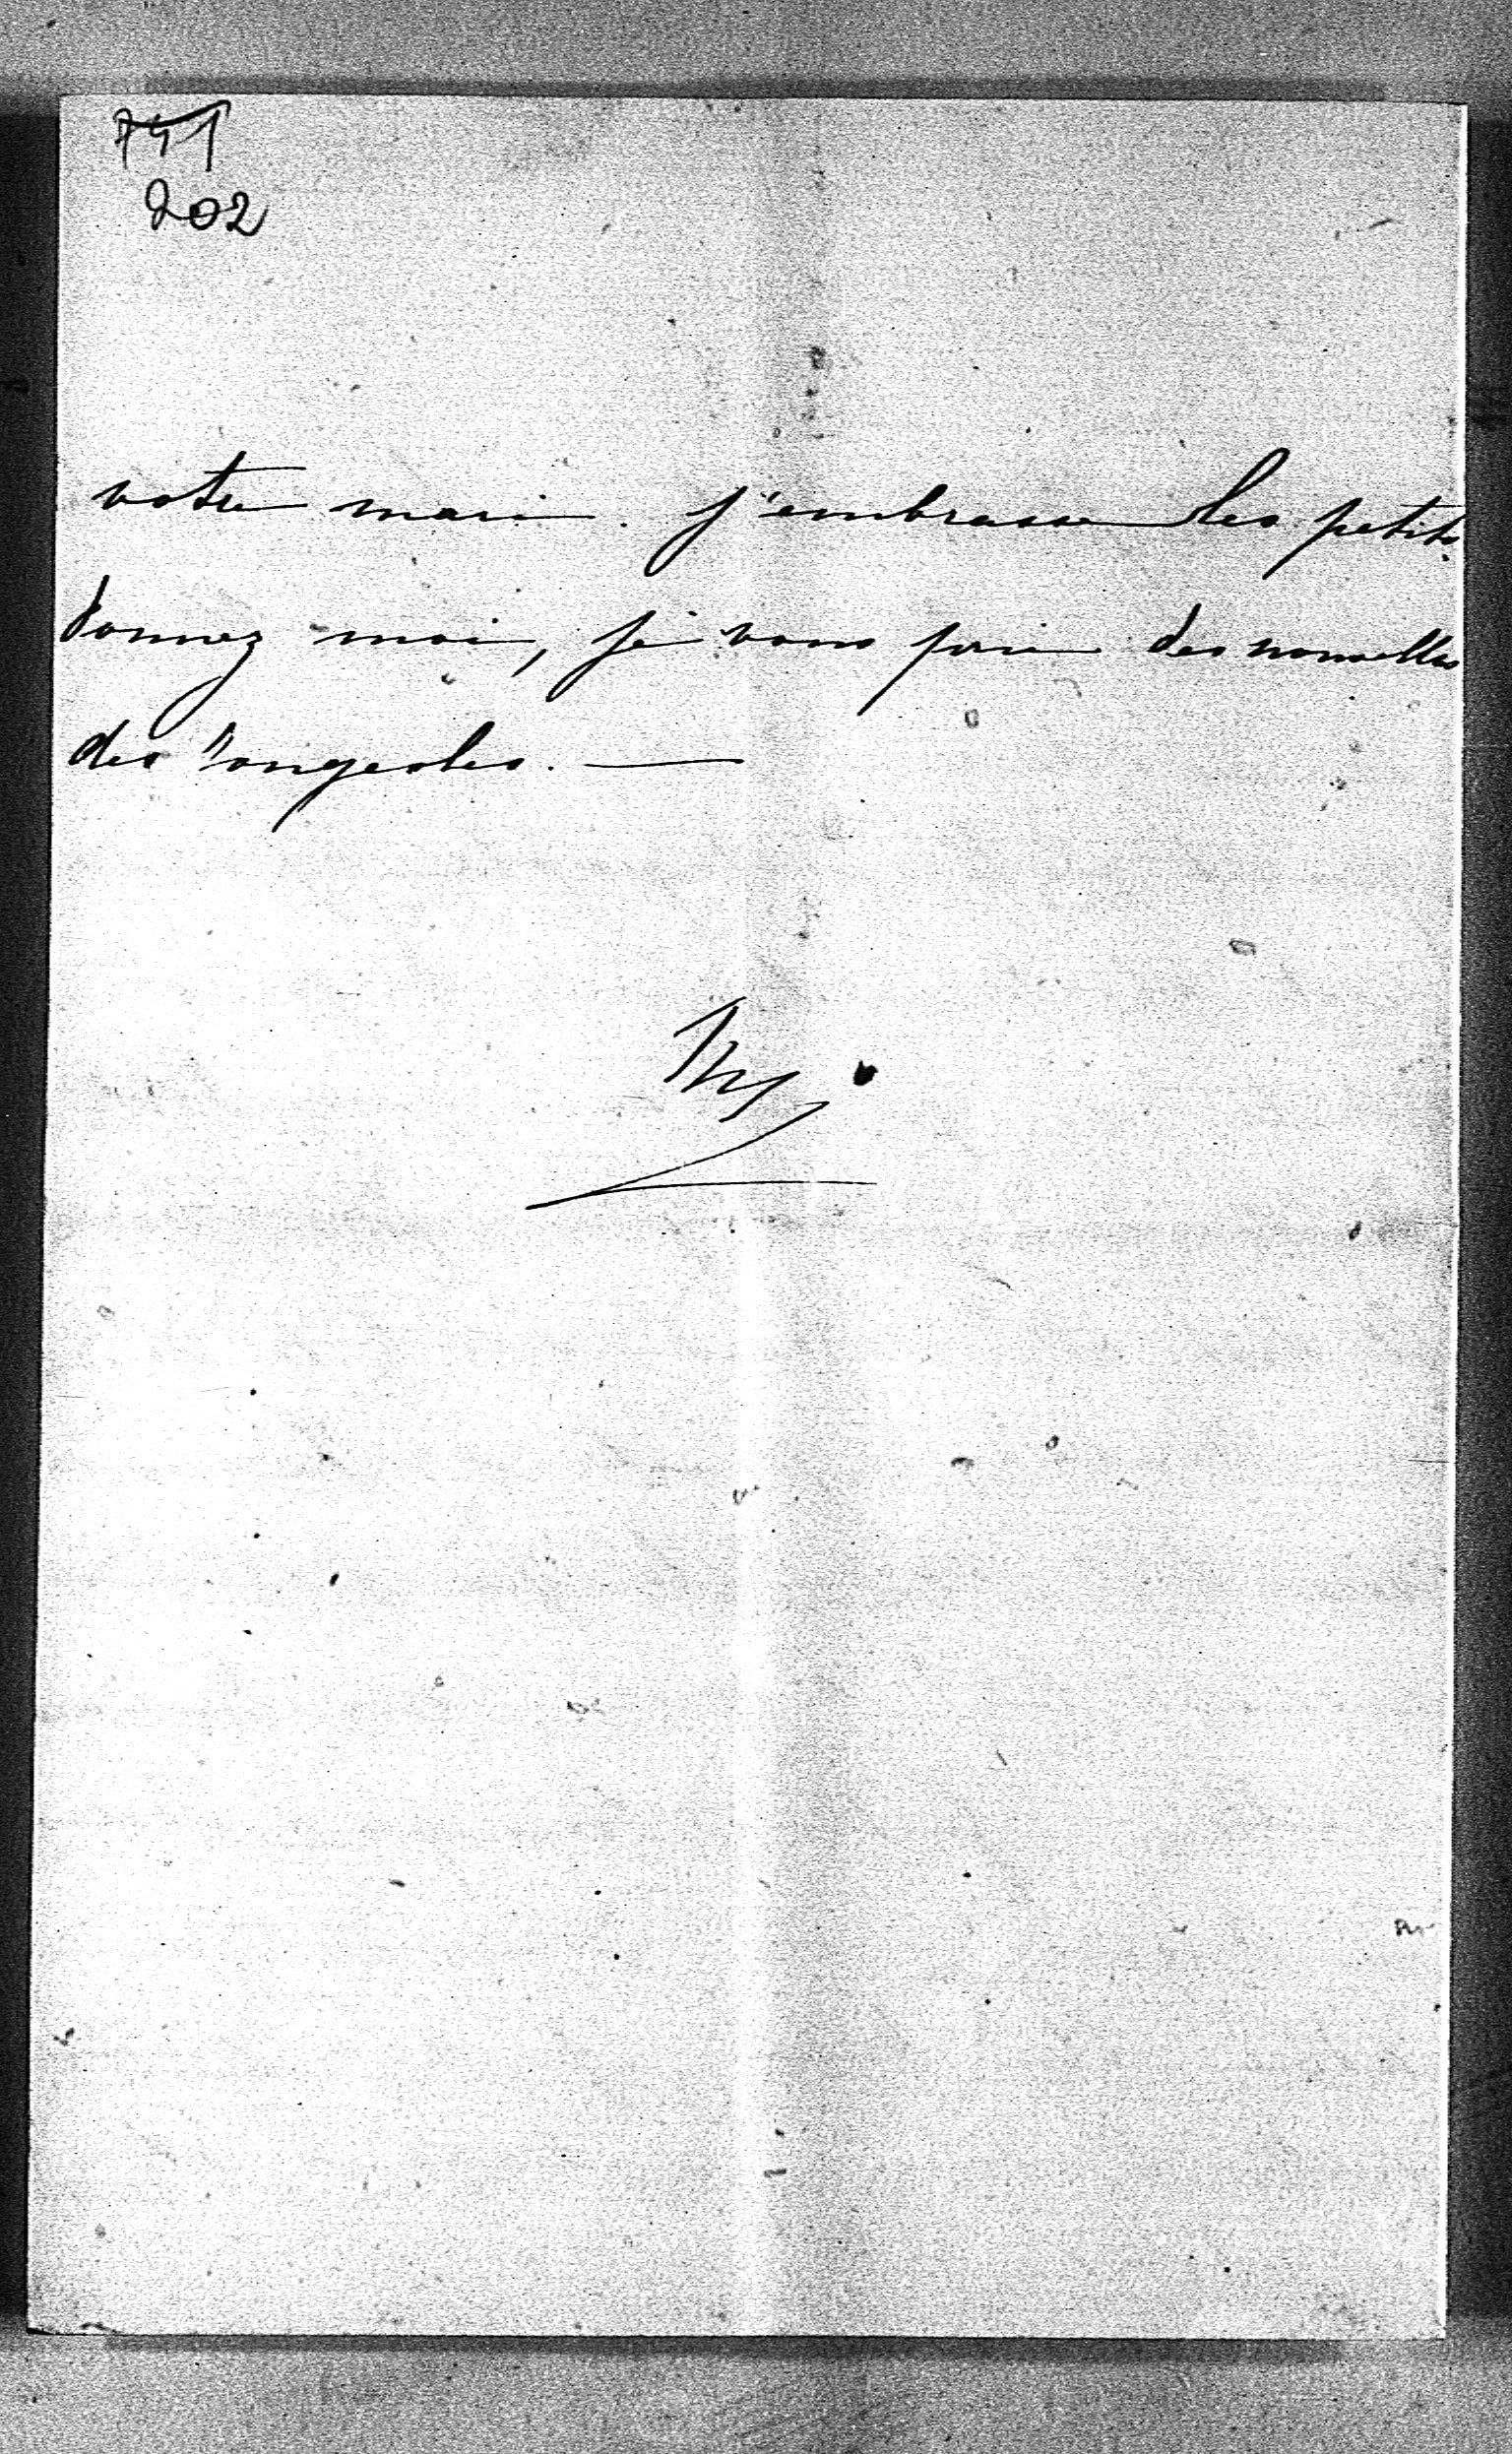 741
202
votre mari. J'embrasse les petits.
donnez moi, je vous prie des nouvelles
des